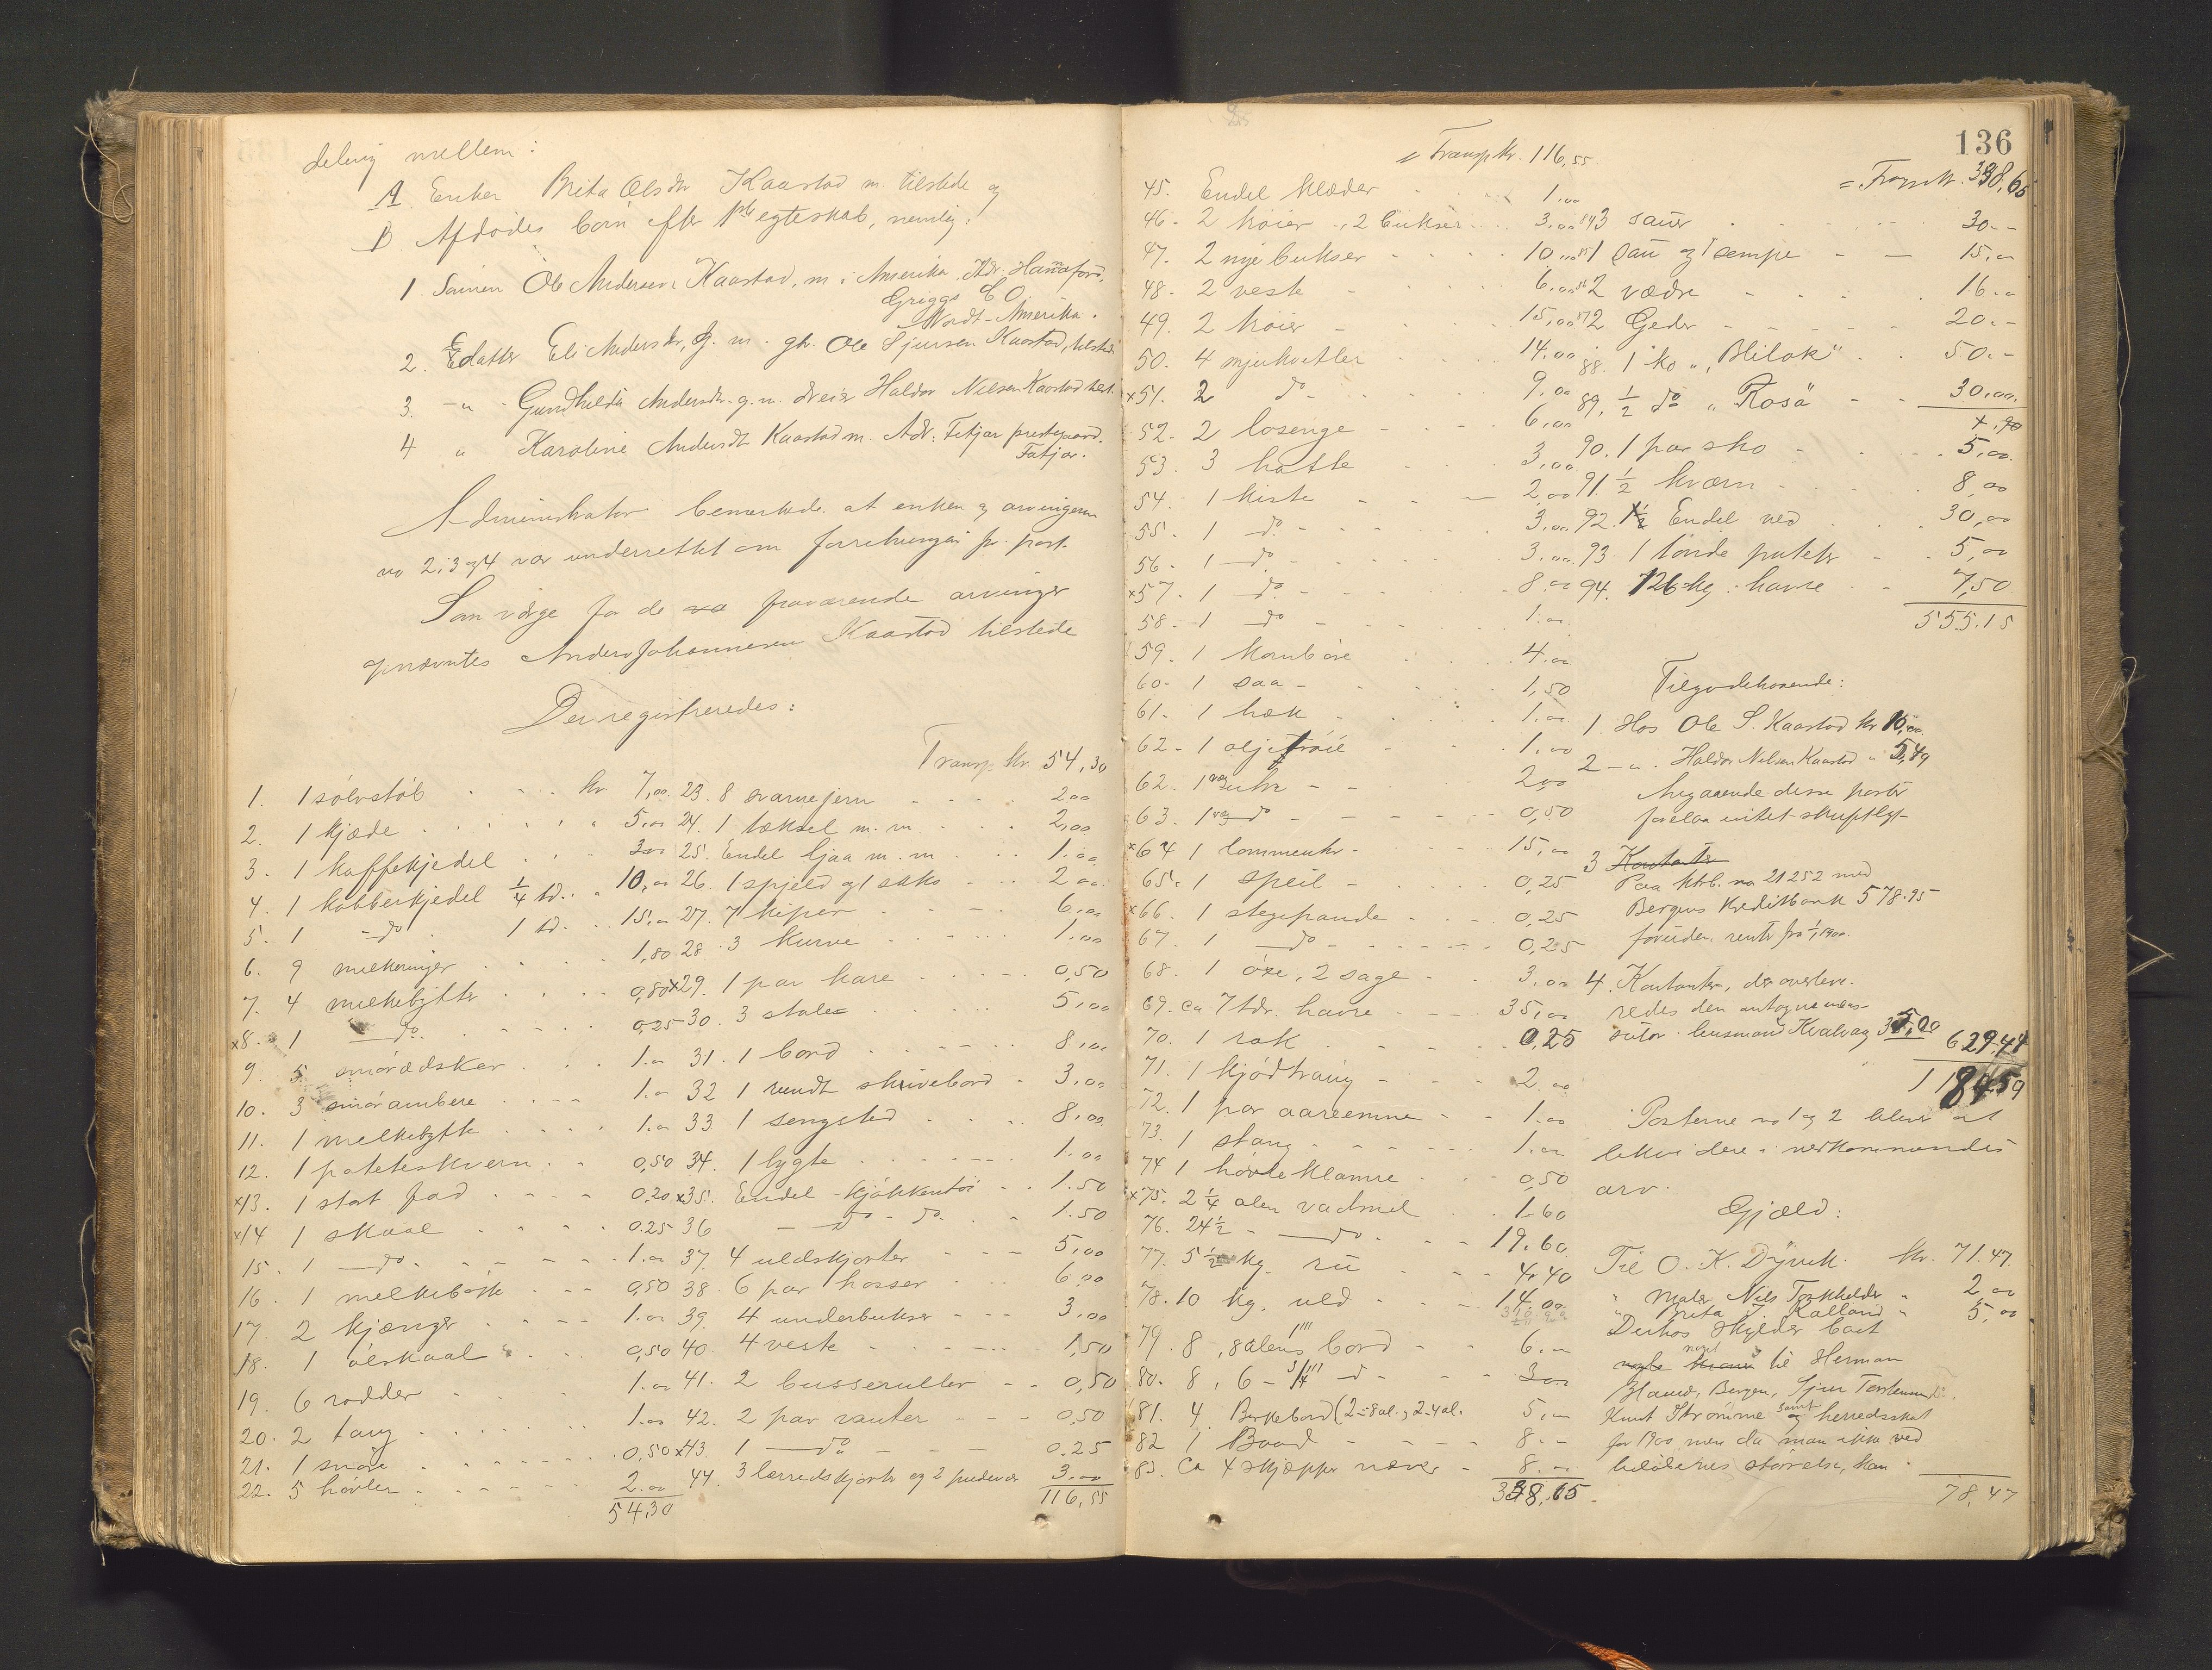 deling mellem:
A Enken Brita Olsdtr Kaastad m. tilstede og
B Afdødes børn efter 1ste egteskab, nemlig:
1. Sønnen Ole Andersen Kaastad, m. i Amerika. Adr. Hannaford,
Griggs C O.
Nordt-Amerika.
2. datter Eli Andersdtr, g. m. gbr. Ole Sjursen Kaastad, tilstede
3. -"- Gundhilda Andersdtr. g. m. dreier Haldor Nilsen Kaastad tilst.
4 " Karoline Andersdt Kaastad m. Adr: Fitjar prestegaard.
Fitjar.
Administrator bemerkede at enken og arvingerne
no 2, 3 og 4 var underrettet om forretningen pr. post.
Som værge for de fraværende arvinger
opnævntes Anders Johannesen Kaastad tilstede
Der registreredes:
1. 1 sølvstøb kr 7,00
2. 1 kjæde " 5,00
3. 1 kaffekjedel " 3,00
4. 1 kobberkjedel 1/4 td. " 10,00
5. 1 -do- 1 td. 15,00
6. 9 melkeringer 1,80
7. 4 melkebytter 0,80
x8. 1 do. 0,25
9. 5 smørædsker 1.00
10. 3 smørambere 1.00
11. 1 melkebytte 1.00
12. 1 poteteskvern 0,50
x13. 1 stort fad 0,20
x14 1 skaal 0.25
15. 1 do. 1.00
16. 1 melkebøtte 0,50
17. 2 kjænger 1.00
18. 1 ølskaal 0,50
19. 6 rodder 1.00
20. 2 tang 1.00
21. 1 snøre 0,50
22. 5 høvler 2.00
54,30
Transp. kr 54,30
23. 8 svarvejern 2,00
24. 1 tæksel m. m. 2,00
25. Endel ljaa m. m 1.00
26. 1 spjeld og 1 saks 2,00
27. 7 kiper 6,00
28. 3 kurve 1.00
x29. 1 par kare 0,50
30. 3 stole 5,00
31. 1 bord 8,00
32 1 rundt skrivebord 3,00
33 1 sengsted 8,00
34. 1 lygte 1.00
x35. Endel kjøkkentøi 1.50
36 - do - do. 1.50
37. 4 uldskjorter 5,00
38. 6 par hosser 6,00
39. 4 underbukser 3,00
40. 4 veste 1,50
41. 2 busseruller 0,50
42. 2 par vanter 0,50
x43 1 do 0.25
44. 3 lerredskjorter og 2 3,00
116,55
136
= Transp kr. 116,55.
45. Endel klæder 1.00
46. 2 trøier, 2 bukser 3,00
47. 2 nye bukser 10,00
48. 2 veste 6,00
49. 2 trøier 15,00
50. 4 mjukvetler 14,00
x51. 2 do 9,00
52. 2 losenge 6,00
53. 3 hatte 3,00
54. 1 kiste 2,00
55. 1 do 3,00
56. 1 do 3,00
x57. 1 do 8,00
58. 1 do 1.00
59. 1 kornbøre 4.00
60. 1 saa 1,50
61. 1 hæk 1.00
62. 1 oljetrøie 1,00
62. 1 2,00
63. 1 do 0,50
x64 1 lommeuhr 15,00
65. 1 speil 0,25
x66. 1 stegepande 0,25
67. 1 do 0,25
68. 1 øxe, 2 sage 3,00
69. ca 7 tdr. havre 35,00
70. 1 rok 0,25
71. 1 kjødtraug 2,00
72. 1 par aareemne 1.00
73. 1 stang 1.00
74 1 høvleklamre 0,50
x75. 2 1/4 alen vadmel 1.60
76. 24 1/2 - do. 19.60
77. 5 1/2 kg. ru 4,40
78. 10 kg. uld 14,00
79. 8, 8 alens 1''' bord 6.00
80. 8, 6 - 3/4''' d- 3,00
81. 4 Birkebord (2=8 al., 2=4 al. 5,00
82 1 Baad 8.-
83. Ca 4 skjæpper næver 8.00
338,65
= Transp kr. 338,65
84 3 sauer 30.-
85 1 sau og 1 sempe 15,00
86 2 vædre 16.00
87 2 Geder 20.-
88. 1 ko "Hilak" 50.-
89. 1/2 do "Rosa" 30,00.
90. 1 par sko 5,00.
91. 1/2 kværn 8,00
92. Endel ved 30,00
93. 1 tønde poteter 5,00
94. 126 kg. havre 7,50
555.15
Tilgodehavende:
1. Hos Ole S. Kaastad kr 10,00.
2 -"- Haldor Nilsen Kaastad " 5,49
Angaaende disse poster
forelaa intet skriftligt
3 Kontanter
Paa ktrb. no 21252 med
Bergens Kreditbank 578.95
foruden rente fra 1/1 1900.
4. Kontanter, der overleve-
redes den
lensmand Kvalvaag 35,00
629,44
1184,59
Posterne no 1 og 2 bliver at
likvidere i vedkommendes
arv.
Gjæld:
Til O. K. Dyvik. kr. 71.47.
" Maler Nils Torkkelder " 2,00
" Brita J. Kalland " 5,00
Derhos skylder boet
noget til Herman
Blaud, Bergen, Sjur Torkelsen
Knut Strømme samt herredsskat
for 1900, men da man ikke ved
beløbenes størrelse, kan
78,47